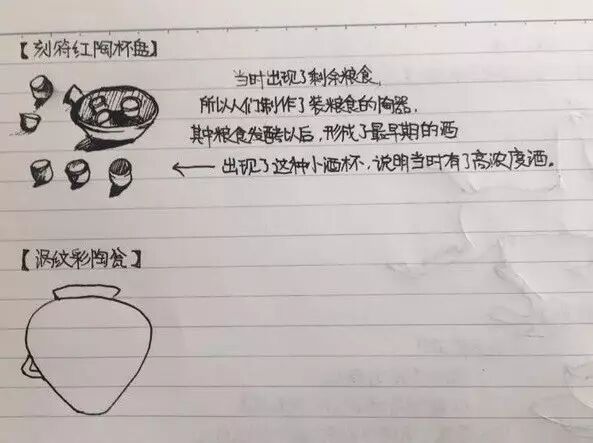 【刻符红陶杯盘】
当时出现了剩余粮食，
所以人们制作了装粮食的陶器，
其中粮食发酵以后，形成了最早期的酒
← 出现了这种小酒杯，说明当时有了高浓度酒。
【涡纹彩陶瓮】